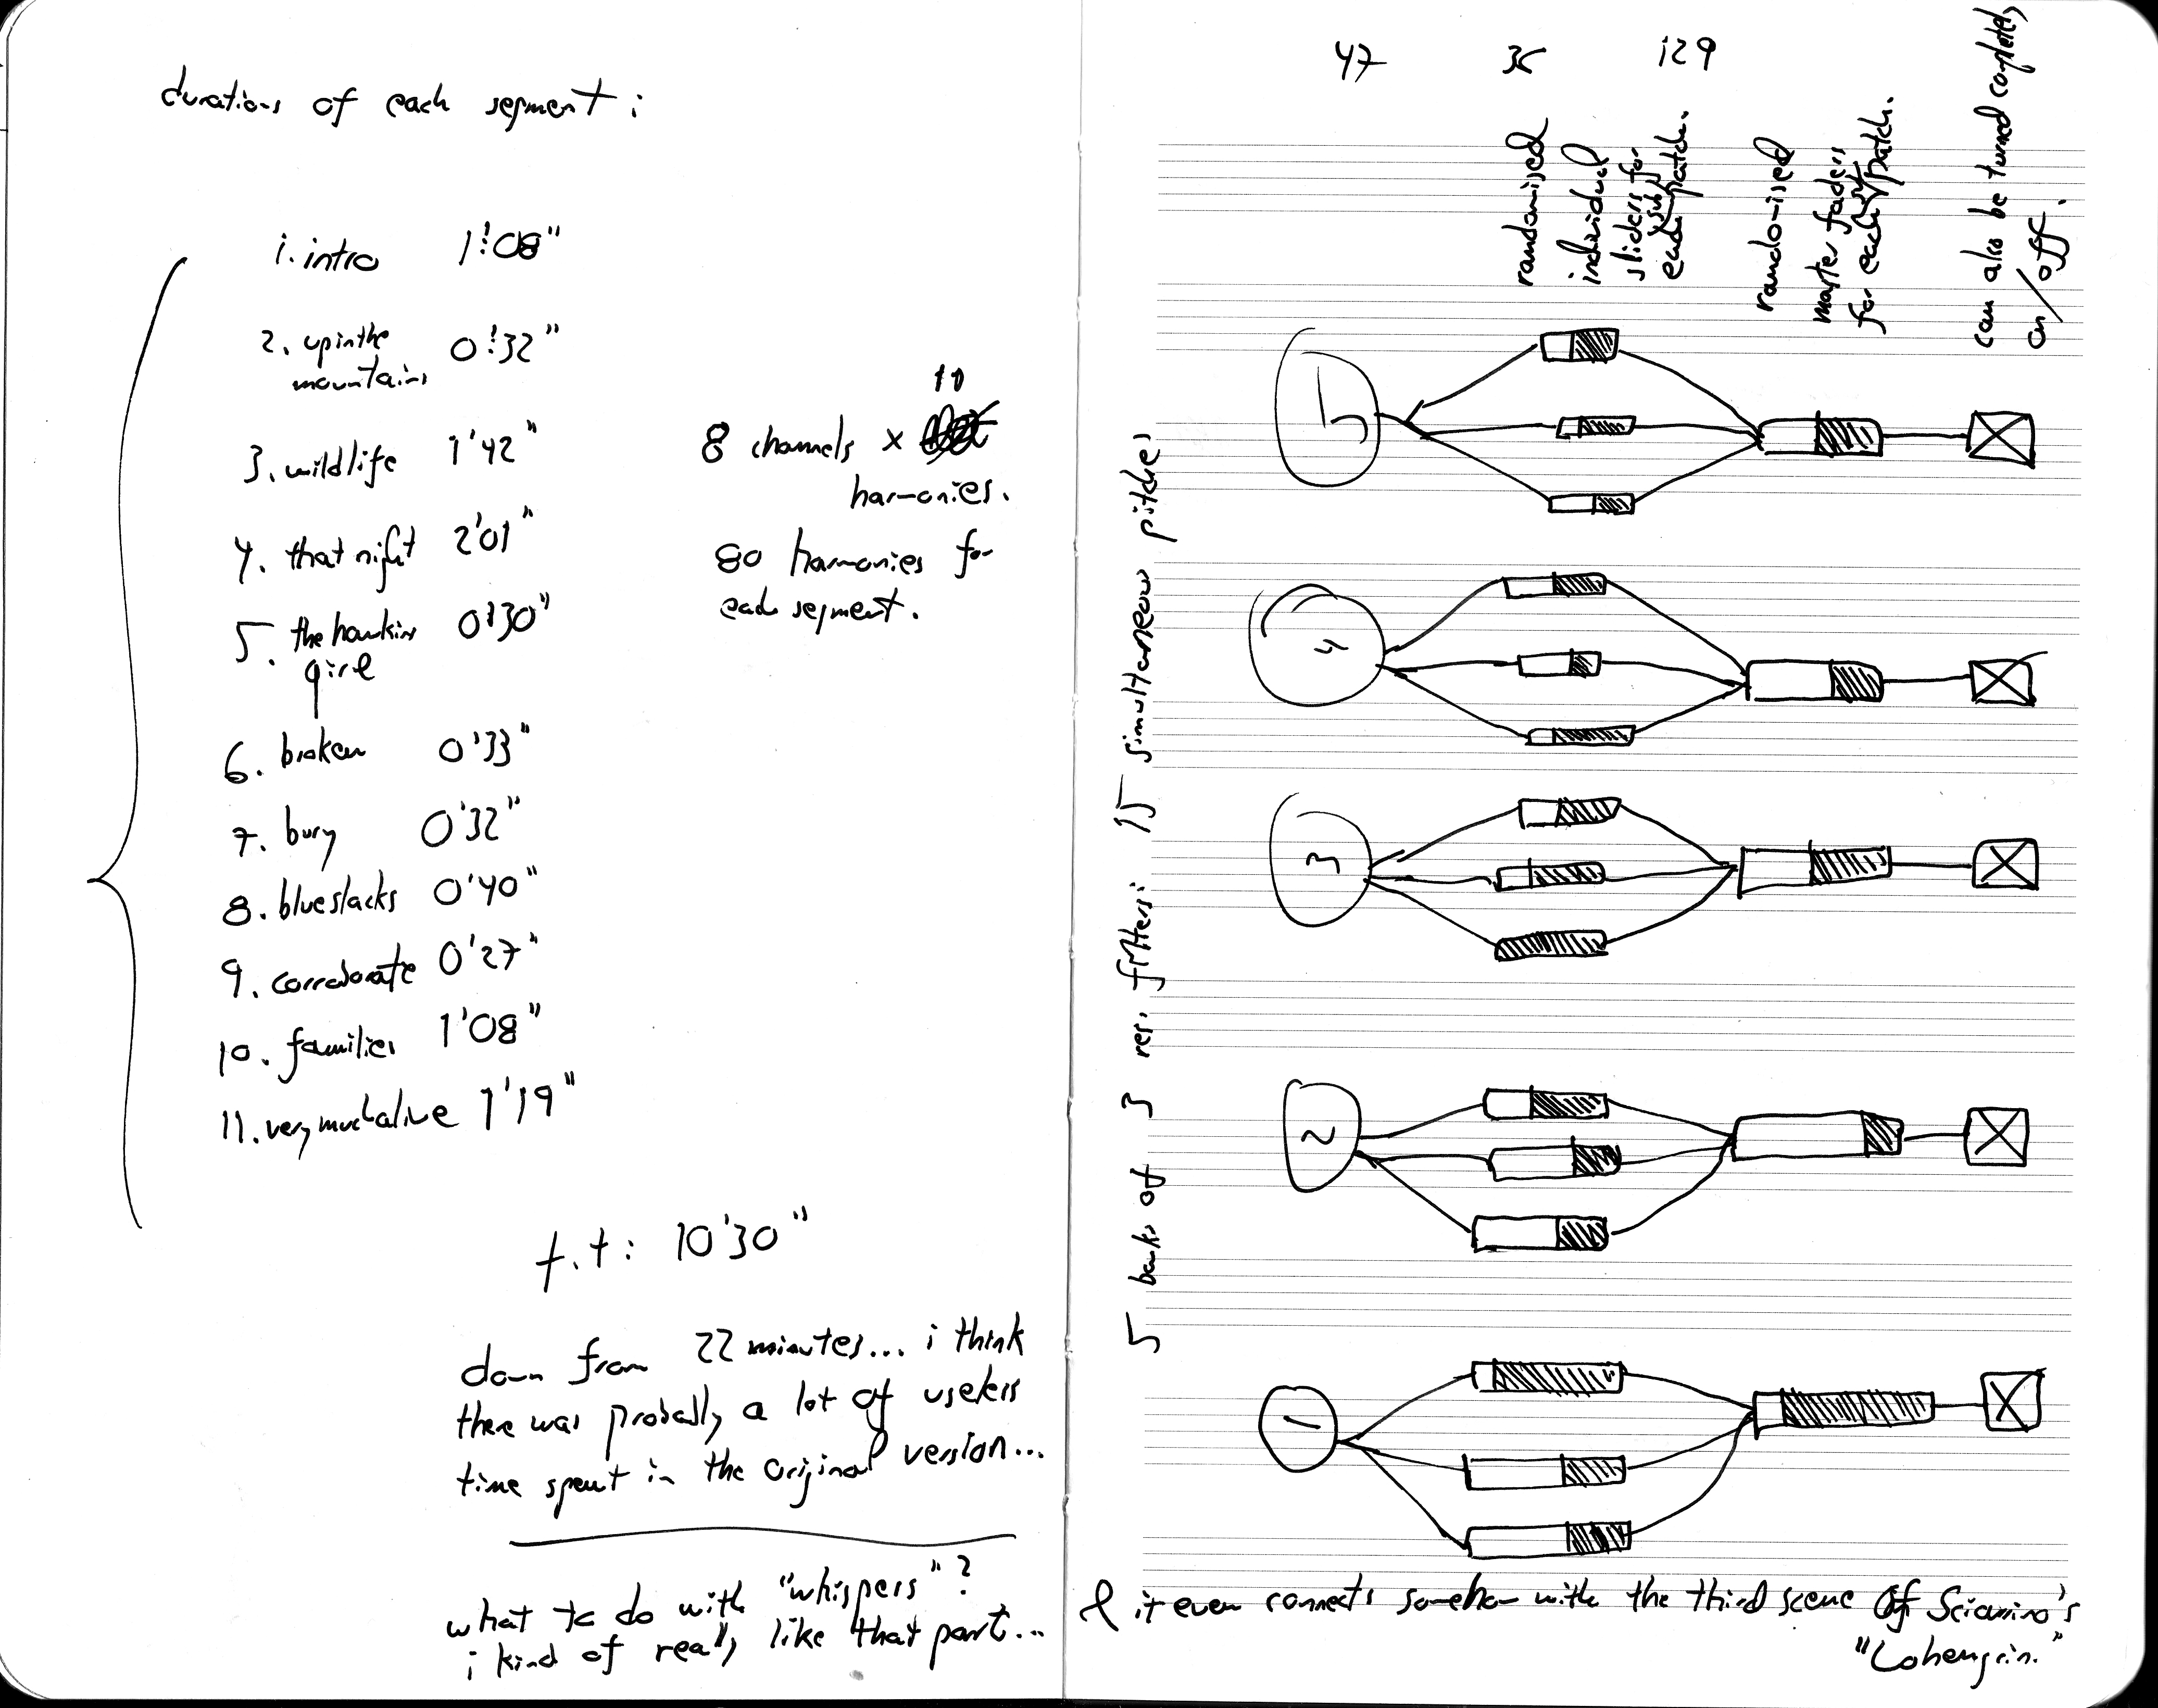 durations of each segment:
1. intro 1'08"
2. up in the
mountains 0'32"
3. wildlife 1'42"
4. that night 2'01"
5. the hawkins
girl 0'30"
6. broken 0'33"
7. bury 0'32"
8. blue slacks 0'40"
9. corroborate 0'27"
10. families 1'08"
11. very much alive 1'19"
t.t: 10'30"
10
8 channels x
harmonies.
80 harmonies for
each segment.
down from 22 minutes... i think
there was probably a lot of useless
time spent in the original version...
what to do with "whispers"?
i kind of really like that part...
47 35 129
randomised
individual
sliders for
each subpatch.
randomised
master faders
for each subpatch.
can also be turned completely
on/off.
5 banks of 3 res. filters: 15 simultaneous pitches
5
4
3
2
1
& it even connects somehow with the third scene of Sciarrino's
"Lohengrin."